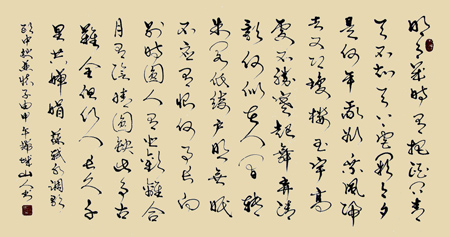 明月幾時有把酒問青
天不知天上宮闕今夕
是何年我欲乘風歸
去又恐瓊樓玉宇高
處不勝寒起舞弄清
影何似在人間轉
朱閣低綺戶照無眠
不應有恨何事長向
別時圓人有悲歡離合
月有陰晴圓缺此事古
難全但願人長久千
里共嬋娟 蘇軾水調歌
中秋兼懷子由甲午山人書